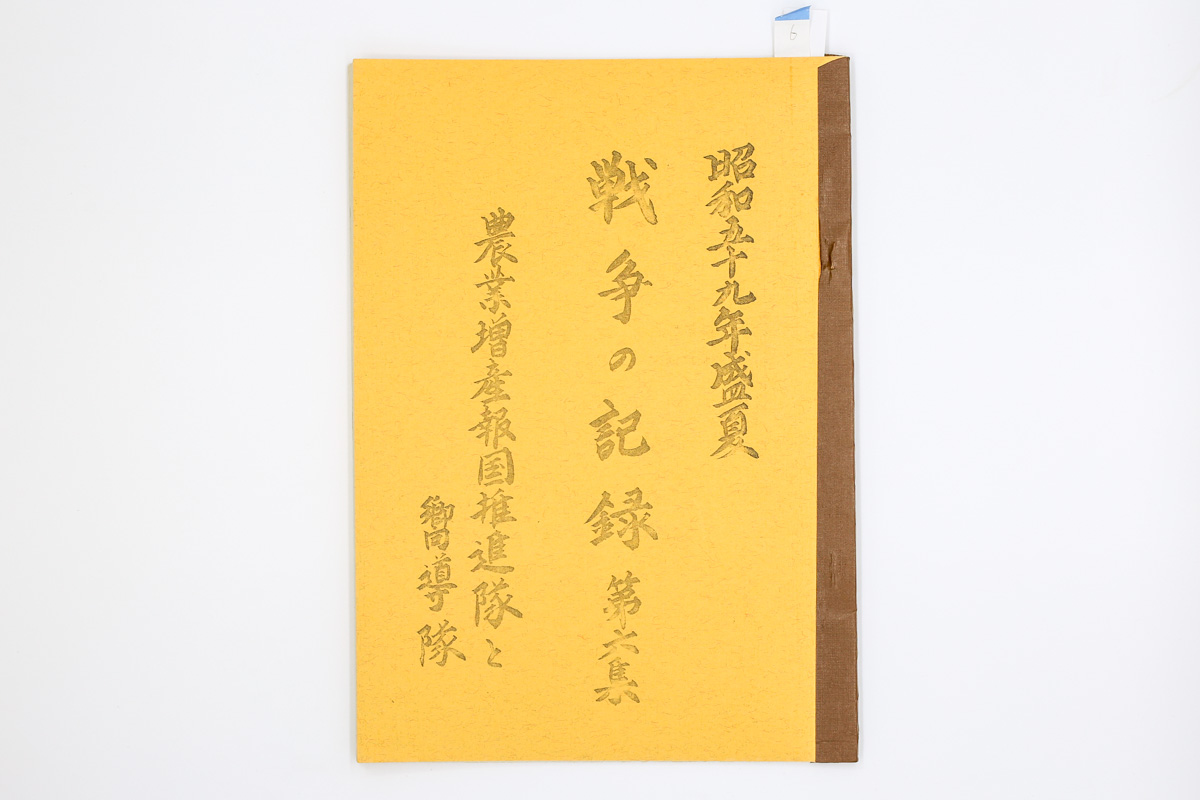 6
昭和五十九年盛夏
戦争の記録第六集
農業増産報国推進隊と
嚮導隊